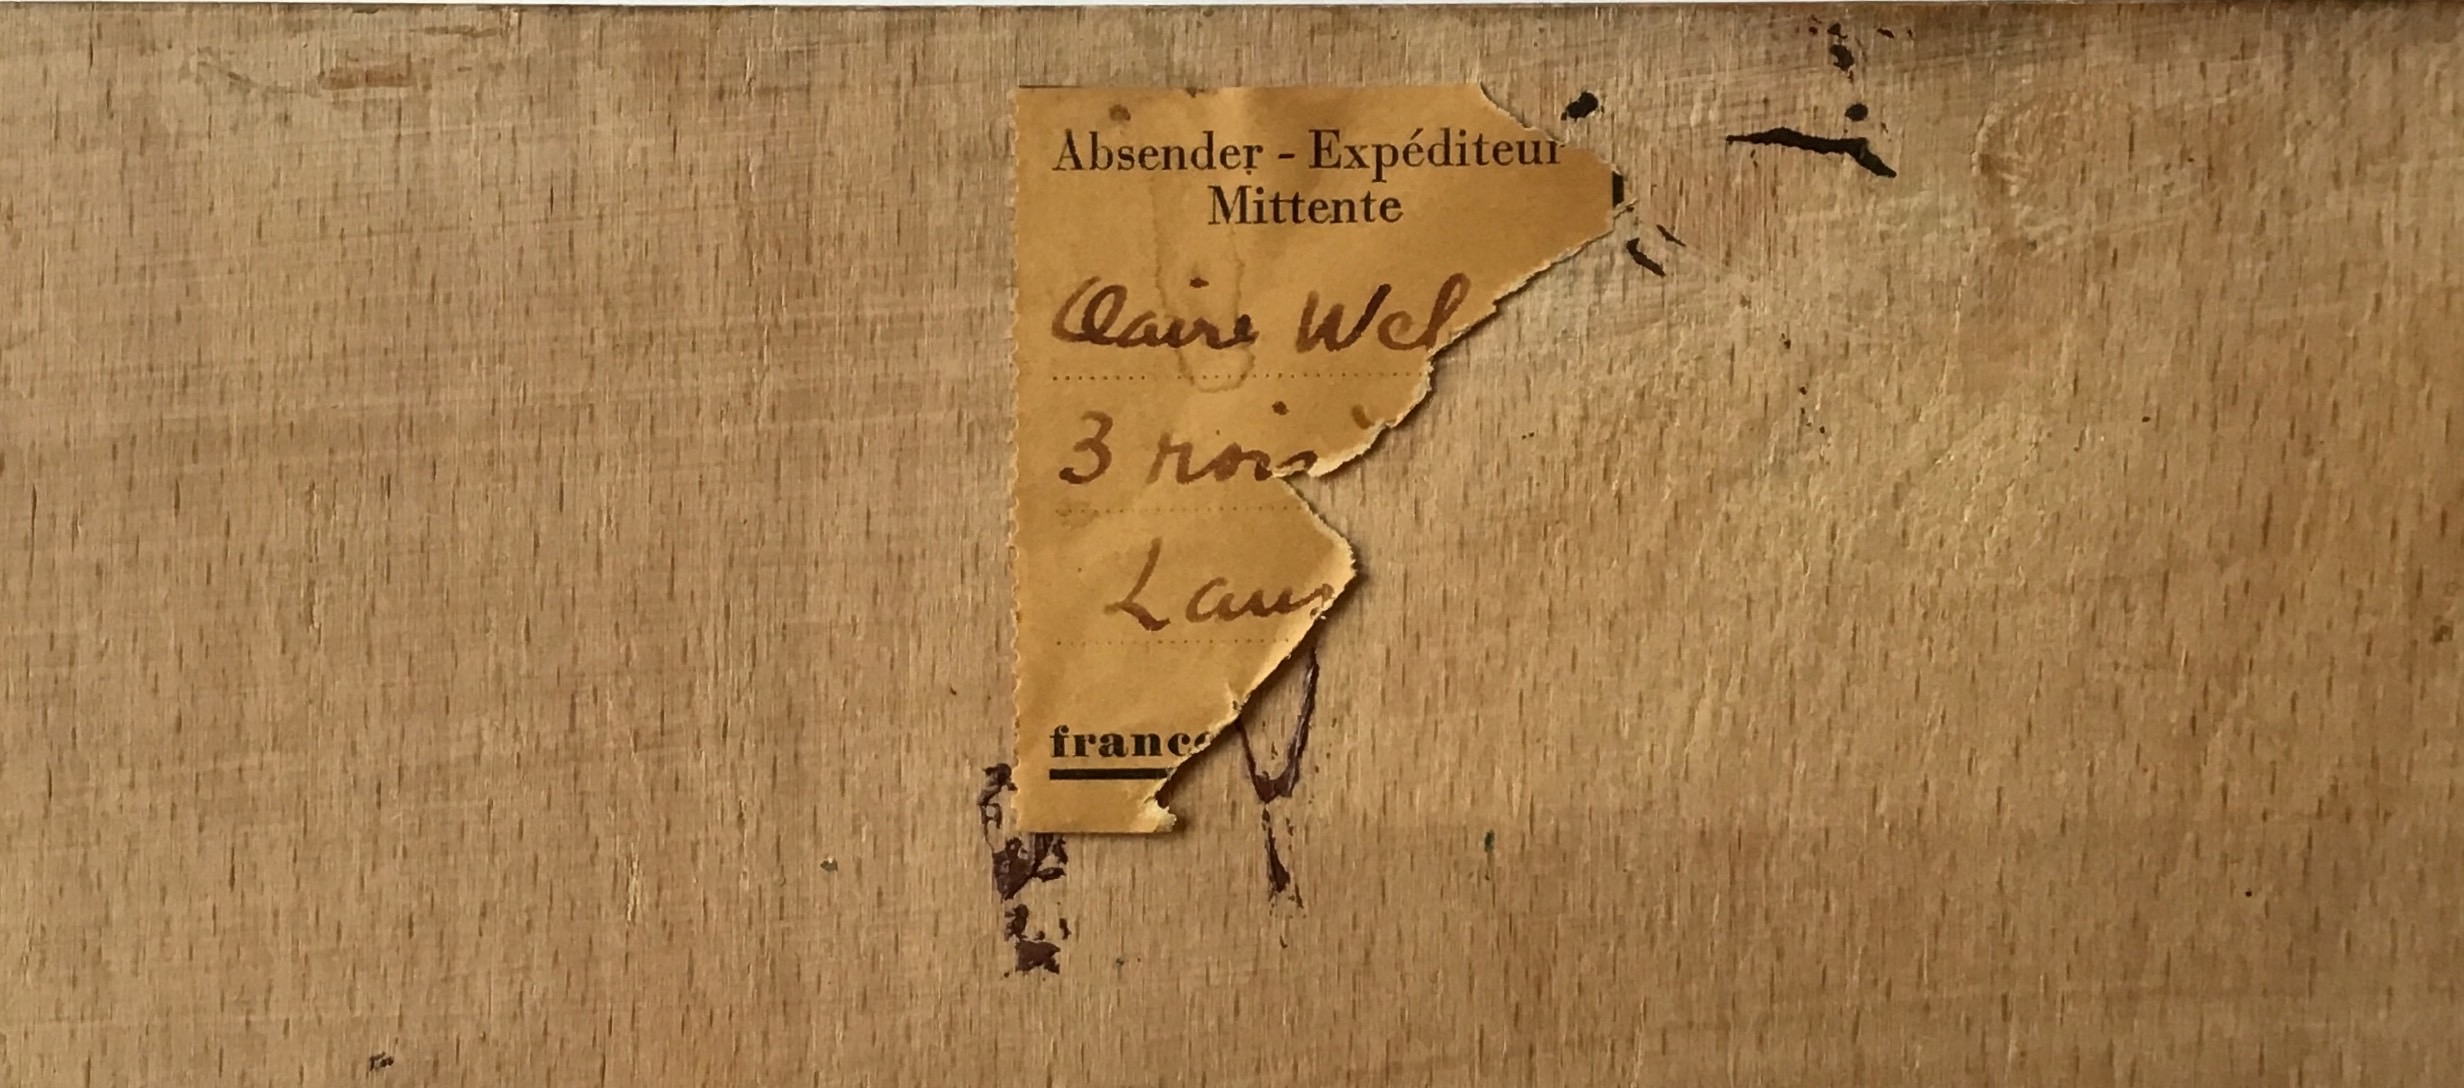 Absender - Expéditeur
Mittente
Claire Wel
3 rois
Laus
franco